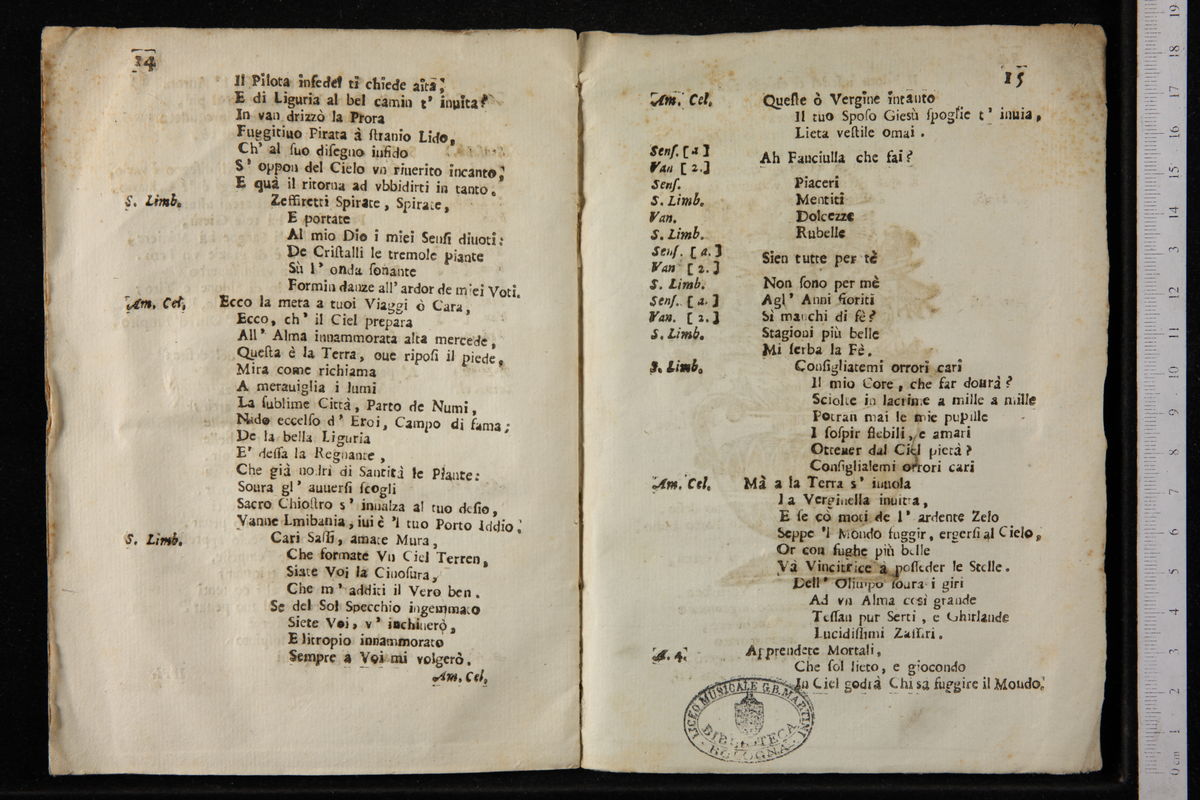 14
Il Pilota infedel ti chiede aità;
E di Liguria al bel camin t' inuita?
In van drizzò la Prora
Fuggitiuo Pirata à ſtranio Lido,
Ch' al ſuo diſegno infido
S' oppon del Cielo vn riuerito incanto;
E quà il ritorna ad vbbidirti in tanto.
S. Limb. Zeffiretti Spirate, Spirate,
E portate
Al mio Dio i miei Senſi diuoti:
De Criſtalli le tremole piante
Sù l' onda ſonante
Formin danze all' ardor de miei Voti.
Am. Cel. Ecco la meta a tuoi Viaggi ò Cara,
Ecco, ch' il Ciel prepara
All' Alma innammorata alta mercede,
Queſta è la Terra, oue ripoſi il piede,
Mira come richiama
A merauiglia i lumi
La ſublime Città, Parto de Numi,
Nido eccelſo d' Eroi, Campo di fama;
De la bella Liguria
E' deſſa la Regnante,
Che già noſtri di Santità le Piante:
Soura gl' auuerſi ſcogli
Sacro Chioſtro s' innalza al tuo deſio,
Vanne Lmibania, iui è 'l tuo Porto Iddio.
S. Limb. Cari Saſſi, amate Mura,
Che formate Vn Ciel Terren,
Siate Voi la Cinoſura,
Che m' additi il Vero ben.
Se del Sol Specchio ingemmato
Siete Voi, v' inchinerò,
Elitropio innammorato
Sempre a Voi mi volgerò.
Am. Cel.
15
Am. Cel. Queſte ò Vergine intanto
Il tuo Spoſo Giesù ſpoglie t' inuia,
Lieta veſtile omai.
Senſ. [a]
Van [2.] Ah Fanciulla che fai?
Senſ. Piaceri
S. Limb. Mentiti
Van. Dolcezze
S. Limb. Rubelle
Senſ. [a.]
Van [2.] Sien tutte per tè
S. Limb. Non ſono per mè
Senſ. [a.] Agl' Anni fioriti
Van. [2.] Si manchi di fè?
S. Limb. Stagioni più belle
Mi ſerba la Fè.
S. Limb. Conſigliatemi orrori cari
Il mio Core, che far dourà?
Sciolte in lacrime a mille a mille
Potran mai le mie pupille
I ſoſpir flebili, e amari
Ottener dal Ciel pietà?
Conſiglialemi orrori cari
Am. Cel. Mà a la Terra s' inuola
La Verginella inuitta,
E ſe cò moti de l' ardente Zelo
Seppe 'l Mondo fuggir, ergerſi al Cielo,
Or con fughe più belle
Và Vincitrice à poſſeder le Stelle.
Dell' Olimpo ſoura i giri
Ad vn Alma così grande
Teſſan pur Serti, e Ghirlande
Lucidiſſimi Zaffiri.
A. 4. Apprendete Mortali,
Che ſol lieto, e giocondo
In Ciel godrà Chi sà fuggire il Mondo.
LICEO MUSICALE G.B. MARTINI
BIBLIOTECA
BOLOGNA